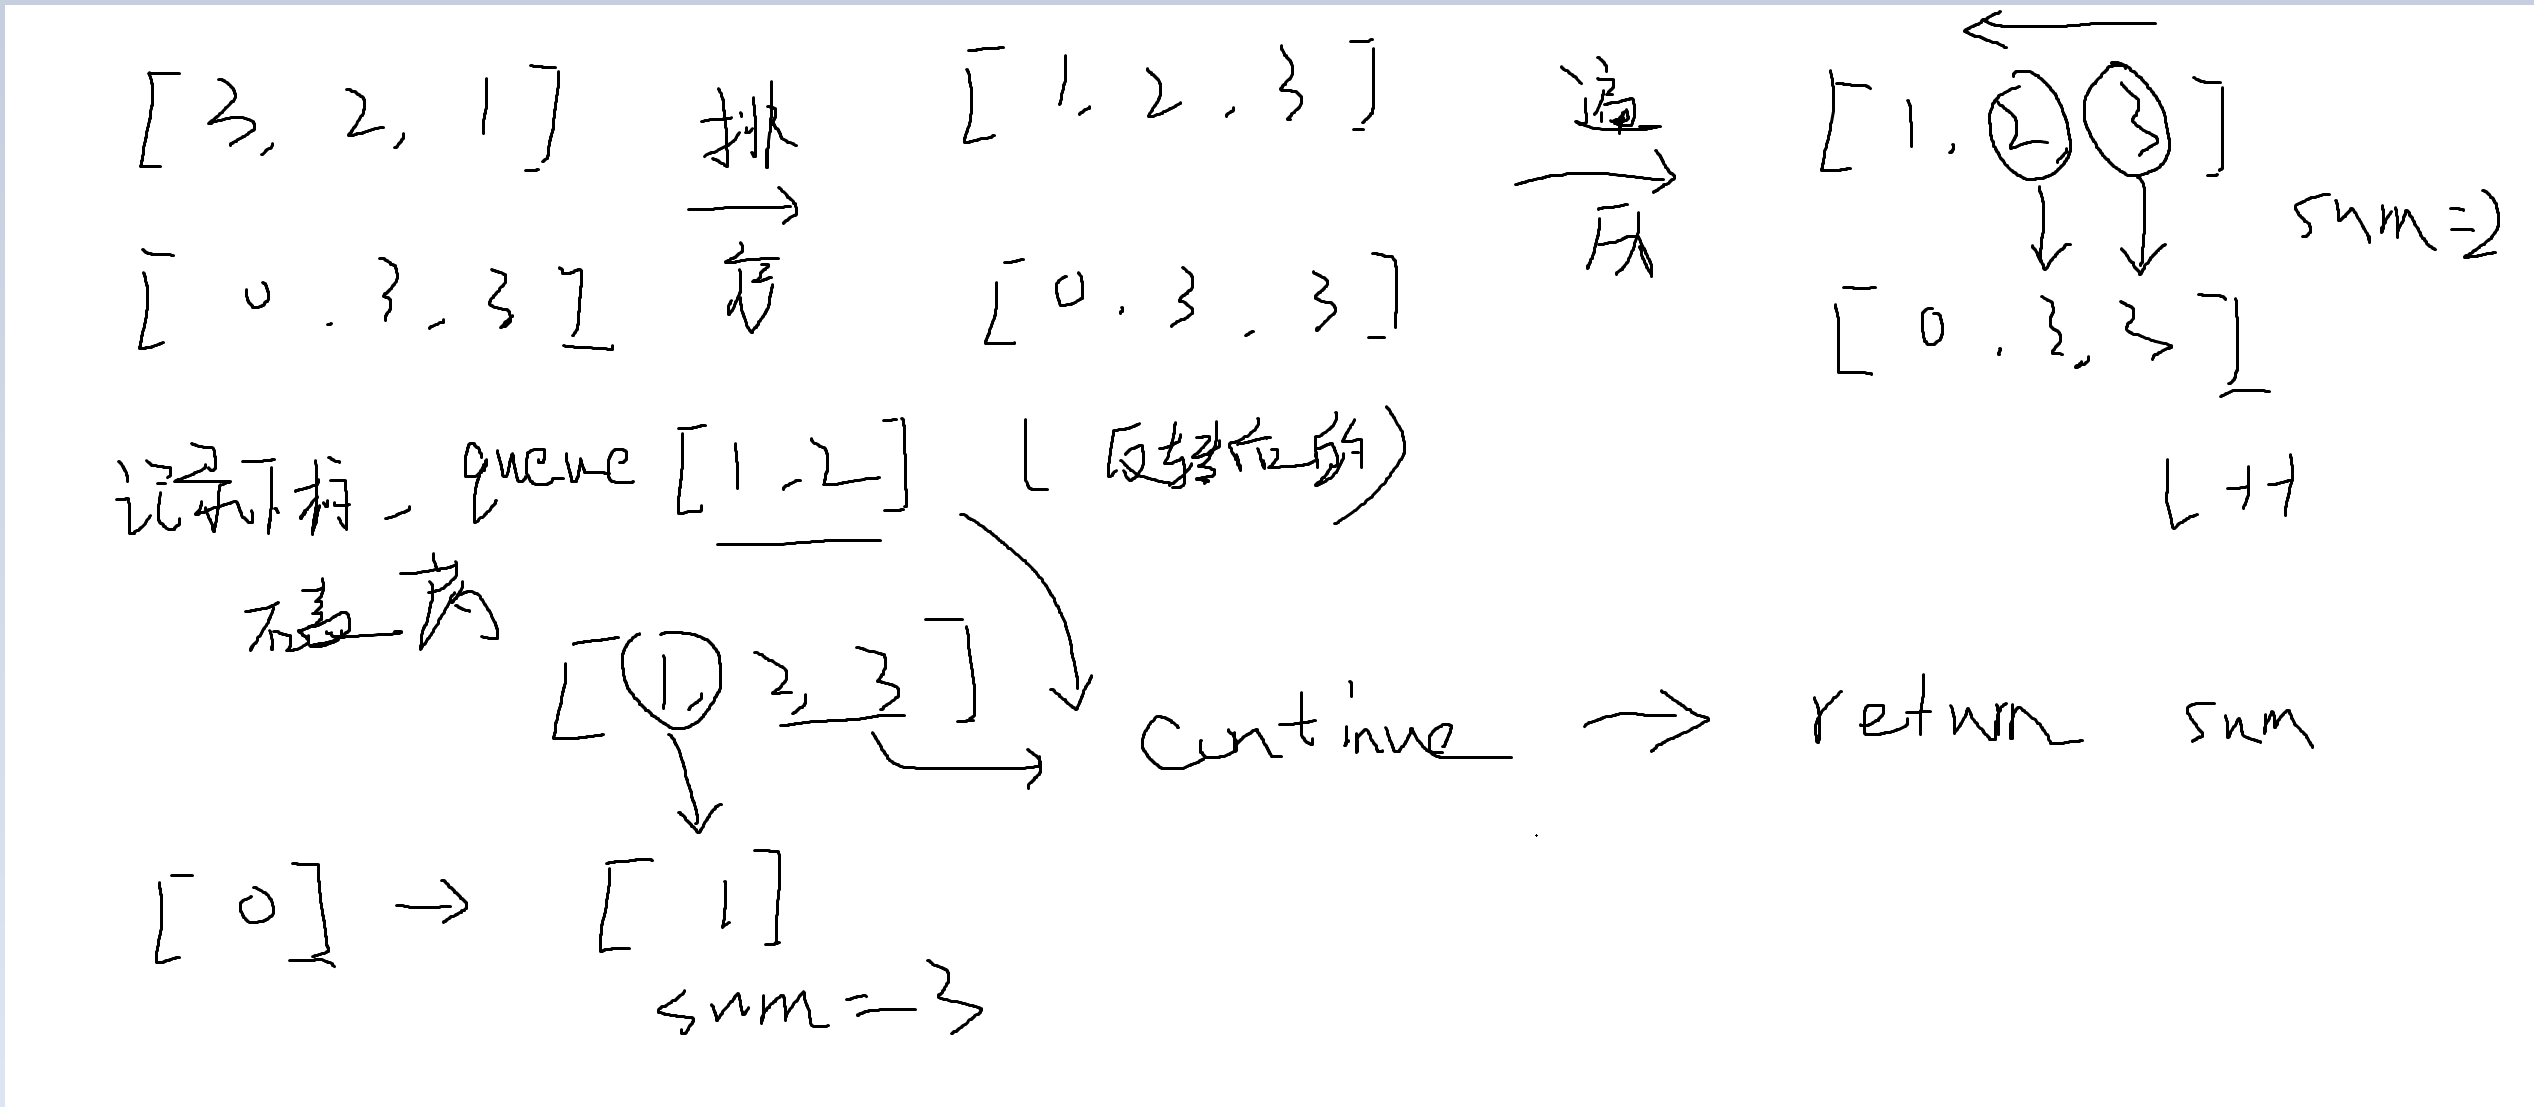 [3, 2, 1] 排 [1, 2, 3] 遍 [1, 2, 3]
sum=2
[0, 3, 3] 序 [0, 3, 3] 历 [0, 3, 3]
记录下标, queue [1, 2] ( 反转后的)
L++
[1, 2, 3]
continue → return sum
[0] → [1]
sum=3